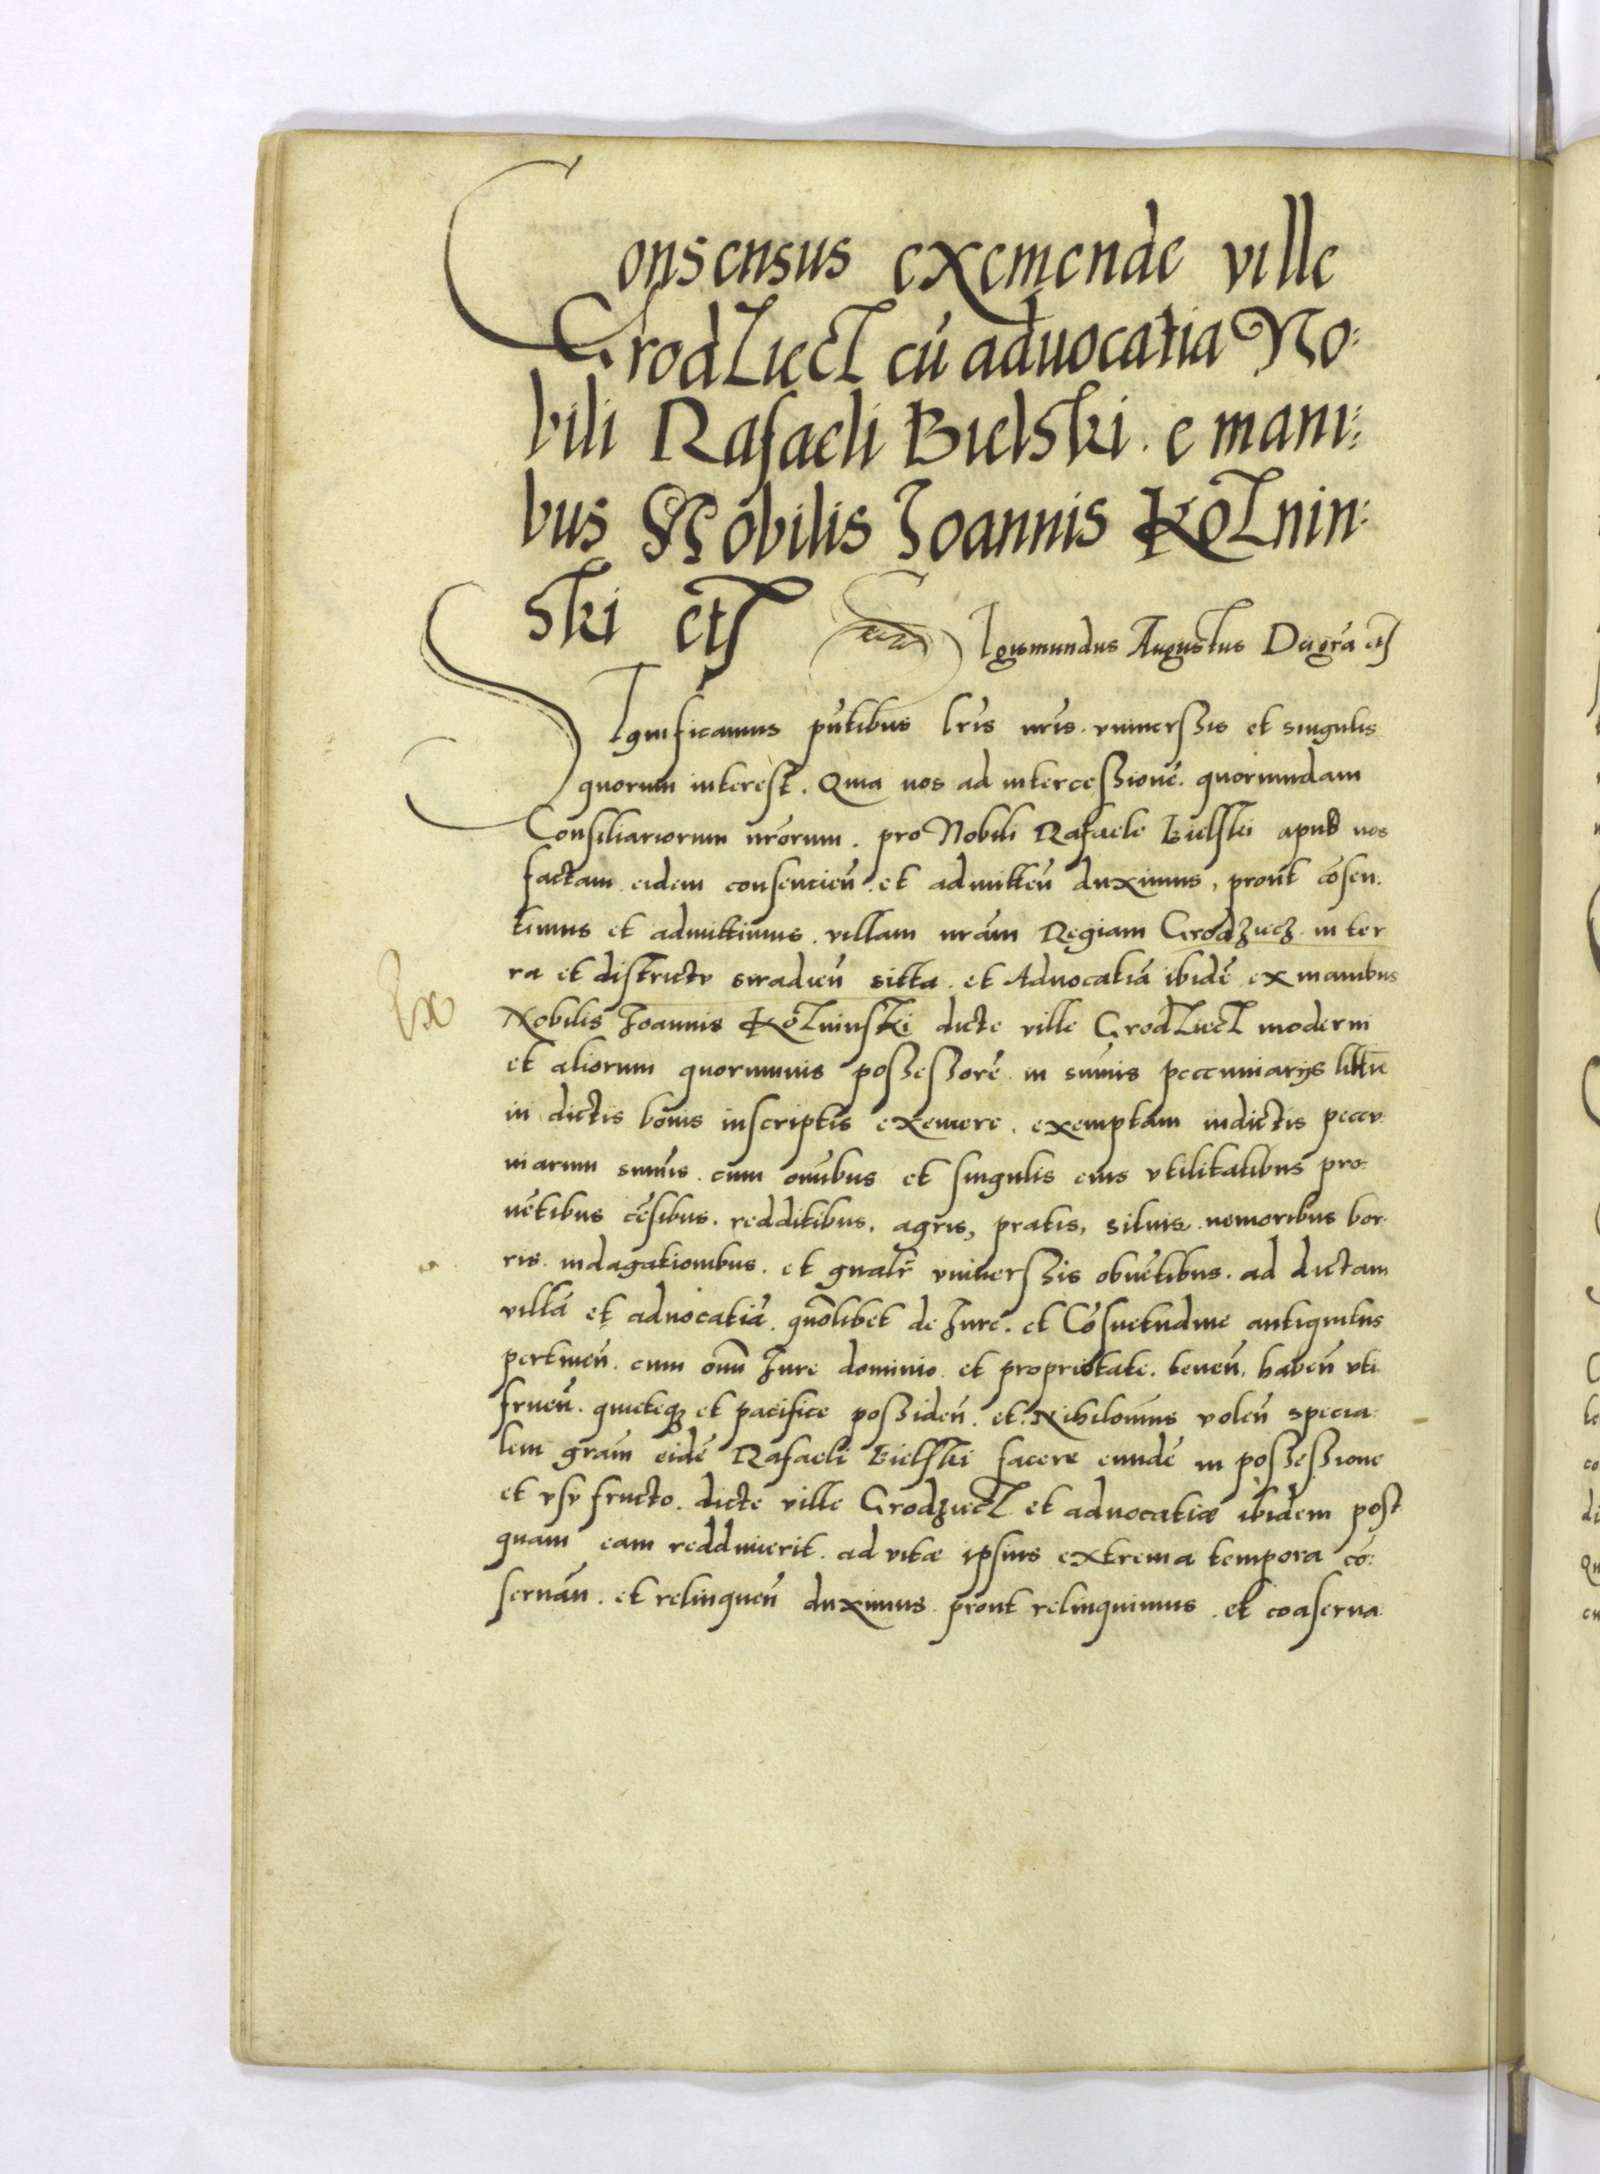 Consensus exemende ville
Grodziecz cū advocatia No:
bili Rafaeli Bielski. e mani:
bus Nobilis Joannis Kożnin:
ski etc
Sigismundus Augustus Dei grā etc
Significamus pn̄tibus lrīs nrīs. vniuerssis et singulis
quorum interest. Quia nos ad intercessionē. quorumdam
Consiliariorum nrōrum. pro Nobili Rafaele Bielski apud nos
factam eidem consencien̄. et admitten̄ duximus, prout cōsen.
timus et admittimus. villam nrām Regiam Grodziecz. in ter
ra et districtv siradien̄ sitta. et Aduocatiā ibidē ex manibus
Ex
Nobilis Joannis Kożninski dicte ville Grodziecz moderni
et aliorum quorumuis possessorē. in sum̄is peccuniarijs
in dictis bonis inscriptis exemere. exemptam in dictis peccv
niarum sum̄is. cum omībus et singulis eius vtilitatibus pro:
uētibus cēsibus. redditibus. agris, pratis, siluis. nemoribus bor.
ris. indagationibus. et gnālr̄ vniuerssis obuētibus. ad dictam
villā et aduocatiā. quōlibet de Jure. et Cōsuetudine antiquitus
pertinen̄. cum omī Jure dominio. et proprietate. tenen̄. haben̄ vti
fruen̄. quieteq; et pacifice possiden̄. et. Nihilominus volen̄ specia:
lem grām eidē Rafaeli Bielski facere eundē in possessione
et vsv fructo. dicte ville Grodziecz et aduocatiæ ibidem post
quam eam reddimerit. ad vitæ ipsius extrema tempora cō:
seruān. et relinquen̄ duximus. prout relinquimus. et coaserua.